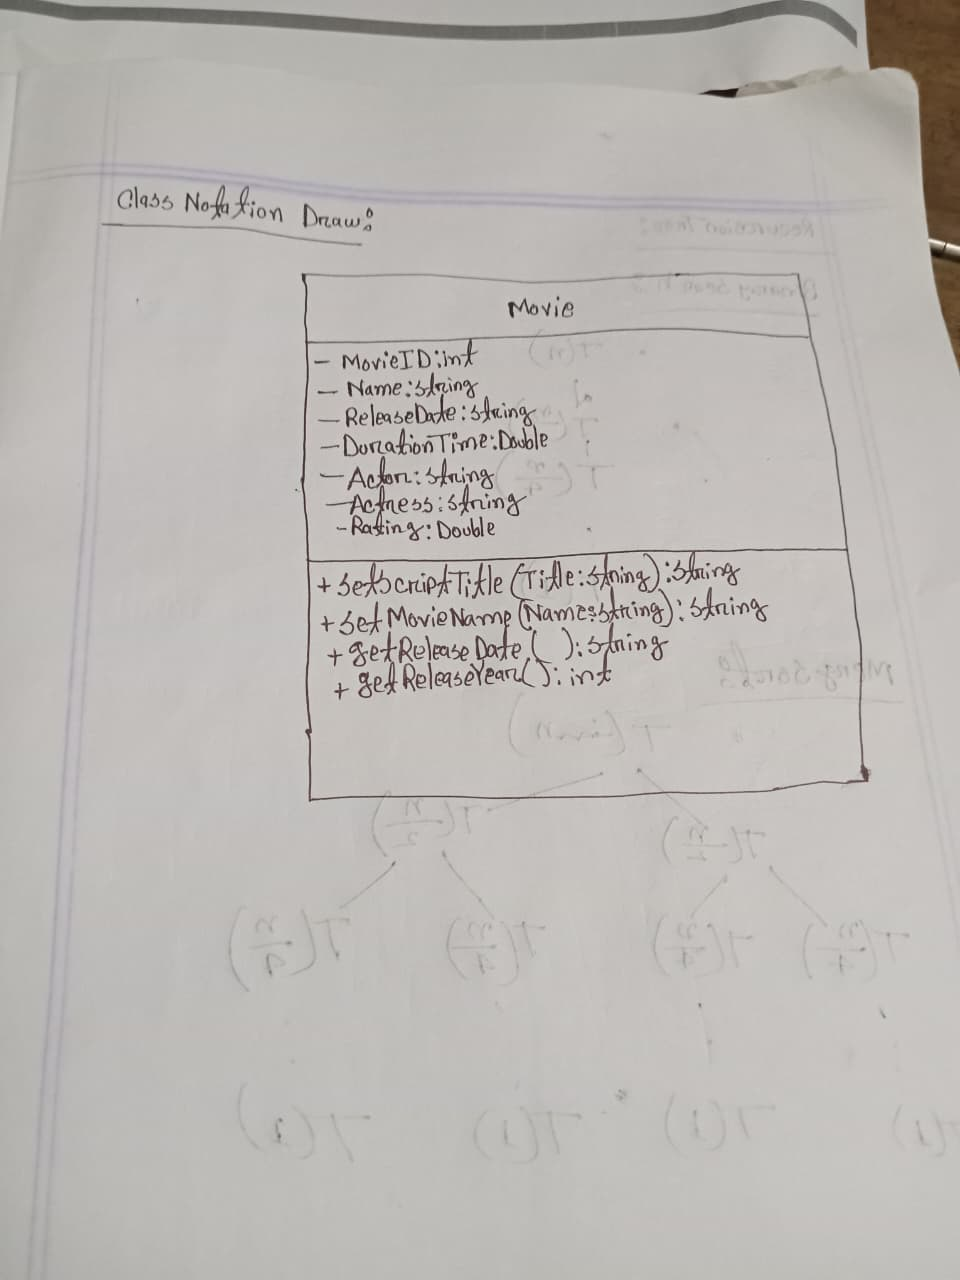 Class Notation Draw:
Movie
- MovieID:int
- Name:string
- ReleaseDate:string
- DurationTime:Double
- Actor:string
- Actress:string
- Rating:Double
+ setscriptTitle(Title:string):string
+ set MovieName(Name:string):string
+ getReleaseDate( ):string
+ getReleaseYear():int